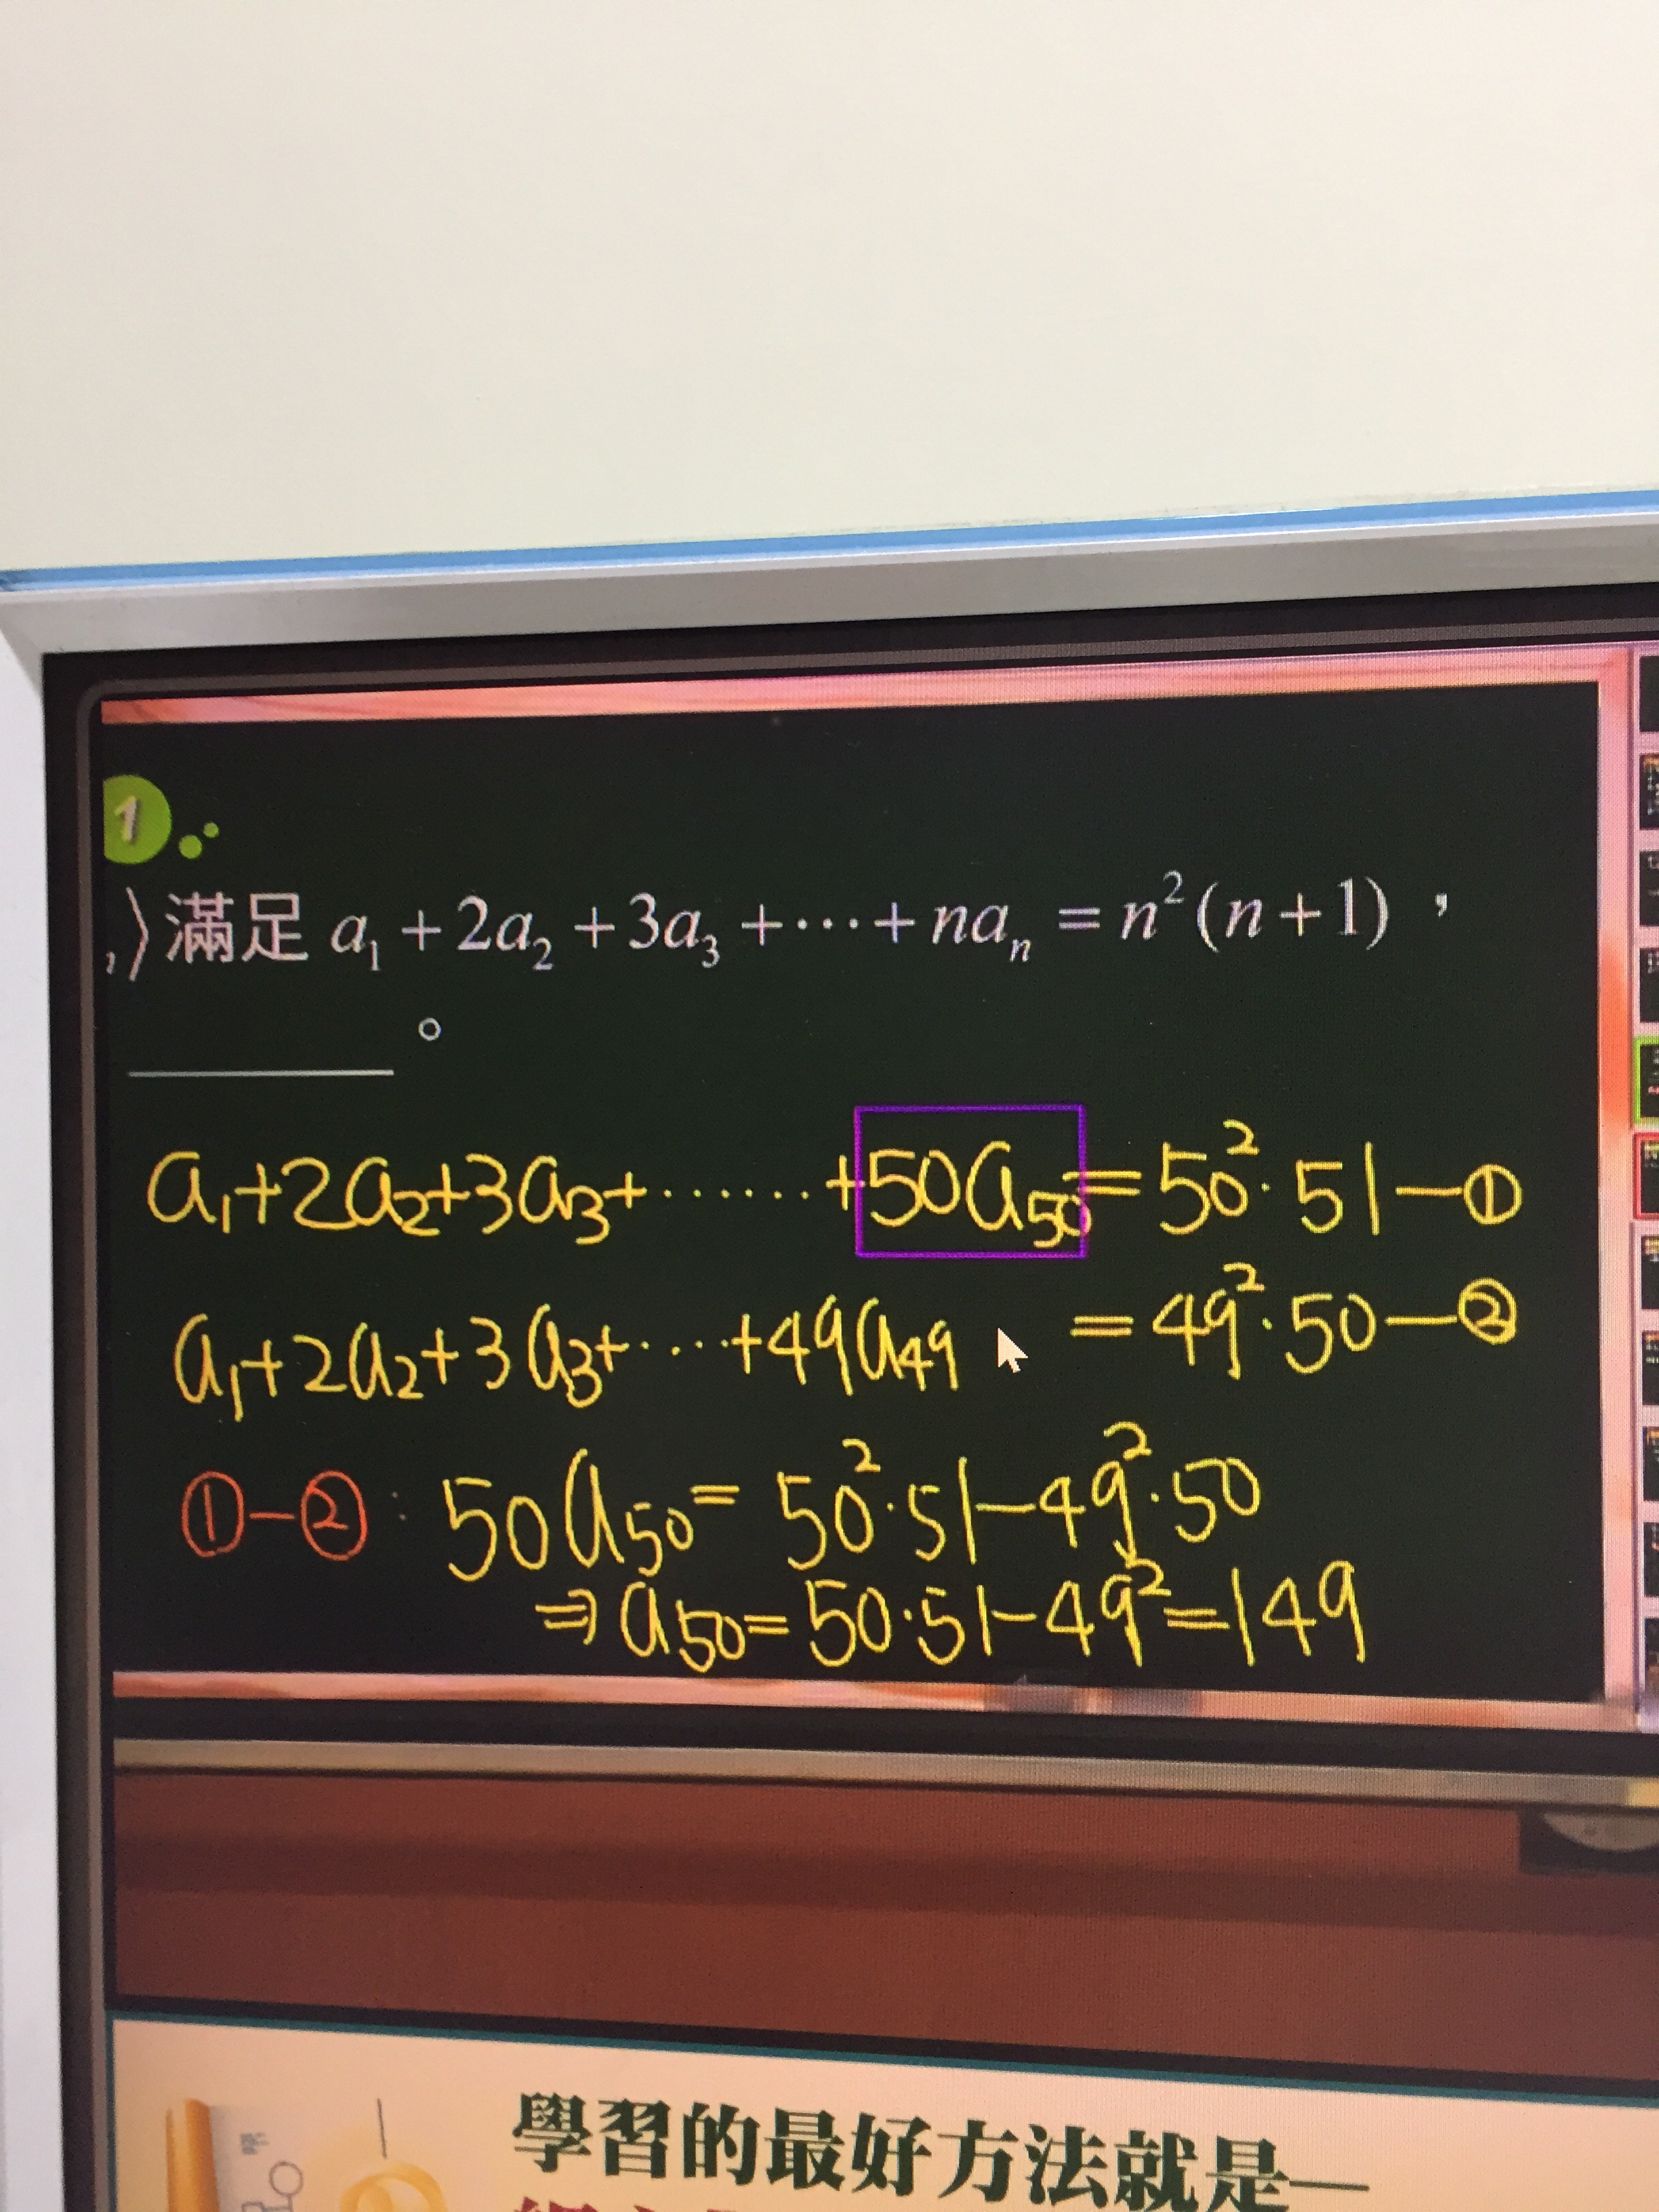 1
〉滿足 a₁ + 2a₂ + 3a₃ + ⋯ + naₙ = n²(n+1)，
________。
a₁+2a₂+3a₃+·······+50a₅₀=50²·51—①
a₁+2a₂+3a₃+····+49a₄₉ =49²·50—②
①-②: 50a₅₀= 50²·51-49²·50
⇒a₅₀=50·51-49²=149
學習的最好方法就是—